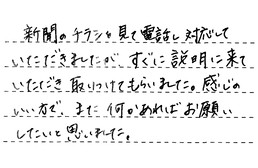 新聞のチラシを見て電話し対応して
いただきましたが、すぐに説明に来て
いただき取りつけてもらいました。感じの
いい方で、また何かあればお願い
したいと思いました。